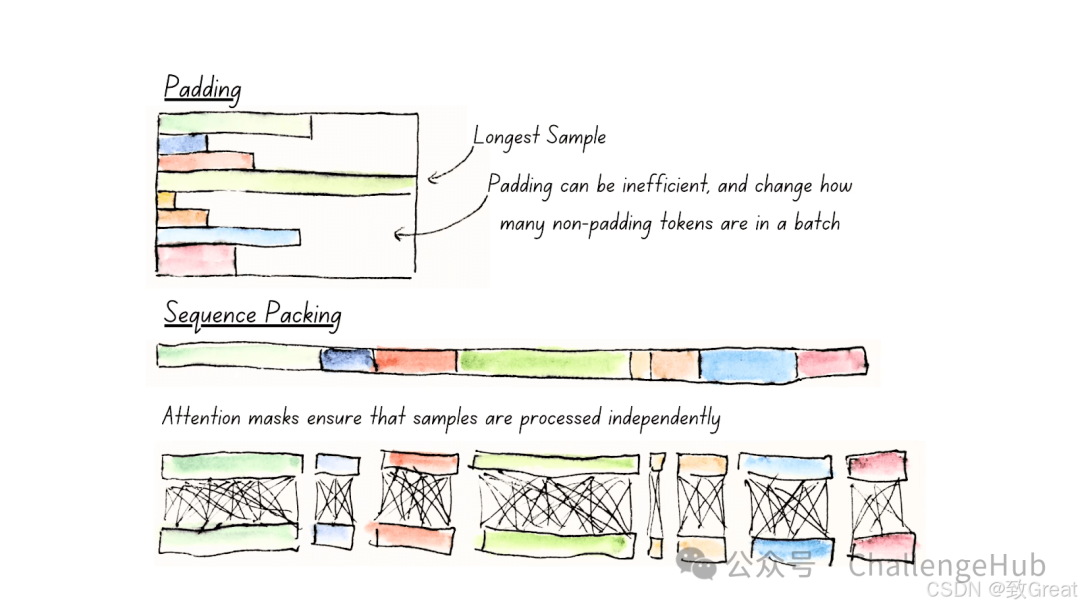 Padding
Longest Sample
Padding can be inefficient, and change how
many non-padding tokens are in a batch
Sequence Packing
Attention masks ensure that samples are processed independently
公众号 ChallengeHub
CSDN @致Great